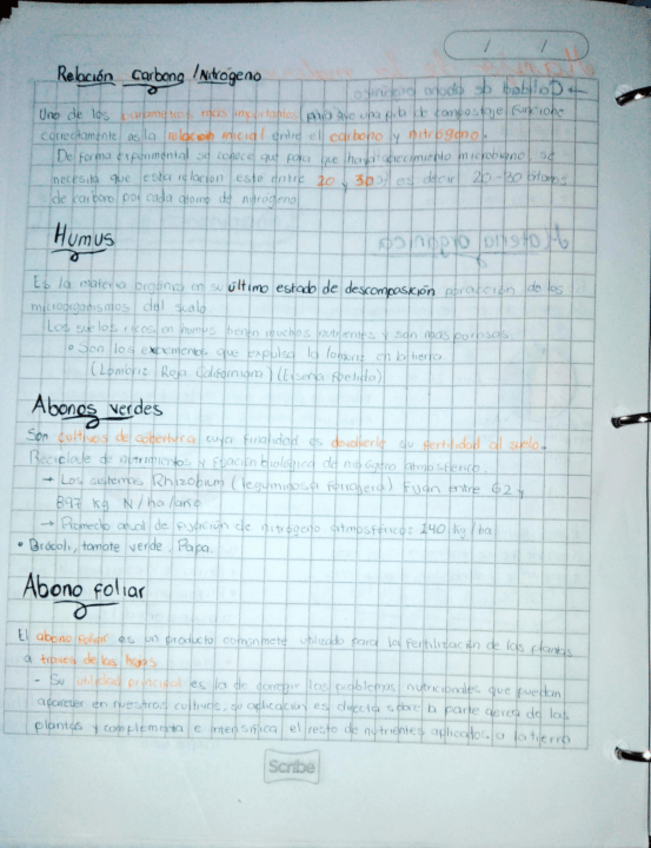 Relación Carbono / Nitrógeno
Uno de los parametros mas importantes para que una pila de compostaje funcione
correctamente es la relacion inicial entre el carbono y nitrógeno.
De forma experimental se conoce que para que haya crecimiento microbiano, se
necesita que esta relacion este entre 20 y 30, es decir 20-30 átomos
de carbono por cada atomo de nitrogeno
Humus
Es la materia organica en su último estado de descomposición por acción de los
microorganismos del suelo.
Los suelos ricos en humus tienen muchos nutrientes y son mas porosos.
• Son los excrementos que expulsa la lombriz en la tierra
(Lombriz Roja Californiana) (Eisenia Foetida)
Abonos verdes
Son cultivos de cobertura cuya finalidad es devolverle su fertilidad al suelo.
Reciclaje de nutrimientos y fijación biológica de nitrógeno atmosferico.
→ Los sistemas Rhizobium (leguminosa forrajera) Fijan entre 62 y
897 kg N/ha/año
→ Promedio anual de fijación de nitrógeno atmosférico: 140 kg/ha
• Brócoli, tomate verde, Papa.
Abono foliar
El abono foliar es un producto utilizado para la fertilización de las plantas
a traves de las hojas
- Su utilidad principal es la de corregir los problemas nutricionales que puedan
aparecer en nuestros cultivos, su aplicación es directa sobre la parte aerea de las
plantas y complementa e intensifica el resto de nutrientes aplicados a la tierra
Scribe